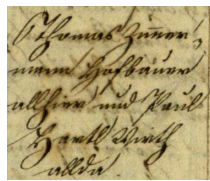 Thomas Zimmer=
mann Hofbauer
allhier und Paul
Hartl Wirth
allda